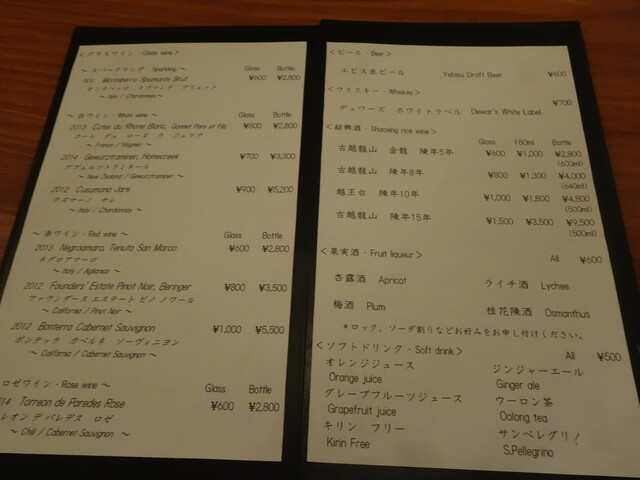 <グラスワイン・Glass wine>
～ スパークリング・Sparkling ～ Glass Bottle
N.V. Monteberro Spumante Brut ¥600 ¥2,800
～ Italy / Chardonnay ～
～ 白ワイン・White wine ～ Glass Bottle
2013 Cotes du Rhone Blanc, Gonnet Pere et Fils ¥600 ¥2,800
コート デュ ローヌ ラ ジェリア
～ France / Viognier ～
2014 Gewurztraminer, Homecreek ¥700 ¥3,300
ゲヴュルツトラミネール
～ New Zealand / Gewurztraminer ～
2012 Cusumano Jare ¥900 ¥5,200
クズマーノ ヤレ
～ Italy / Chardonnay ～
～ 赤ワイン・Red wine ～ Glass Bottle
2013 Negroamaro, Tenuta San Marco ¥600 ¥2,800
ネグロアマーロ
～ Italy / Aglianico ～
2012 Founders' Estate Pinot Noir, Beringer ¥800 ¥3,500
ファウンダース エステート ピノ ノワール
～ California / Pinot Noir ～
2012 Bonterra Cabernet Sauvignon ¥1,000 ¥5,500
ボンテッラ カベルネ ソーヴィニヨン
～ California / Cabernet Sauvignon ～
ロゼワイン・Rose wine ～ Glass Bottle
014 Torreon de Paredes Rose ¥600 ¥2,800
レオン デ パレデス ロゼ
～ Chili / Cabernet Sauvignon ～
<ビール・Beer>
エビス生ビール Yebisu Draft Beer ¥600
<ウイスキー・Whiskey>
デュワーズ ホワイトラベル Dewar's White Label ¥700
<紹興酒・Shaoxing rice wine> Glass 180ml Bottle
古越龍山 金龍 陳年5年 ¥600 ¥1,000 ¥2,800
(600ml)
古越龍山 陳年8年 ¥800 ¥1,300 ¥4,000
(640ml)
越王台 陳年10年 ¥1,000 ¥1,800 ¥4,800
(500ml)
古越龍山 陳年15年 ¥1,500 ¥3,500 ¥9,500
(500ml)
<果実酒・Fruit liqueur> All ¥600
杏露酒 Apricot ライチ酒 Lychee
梅酒 Plum 桂花陳酒 Osmanthus
*ロック、ソーダ割りなどお好みをお申し付けください。
<ソフトドリンク・Soft drink> All ¥500
オレンジジュース ジンジャーエール
Orange juice Ginger ale
グレープフルーツジュース ウーロン茶
Grapefruit juice Oolong tea
キリン フリー サンペレグリノ
Kirin Free S.Pellegrino